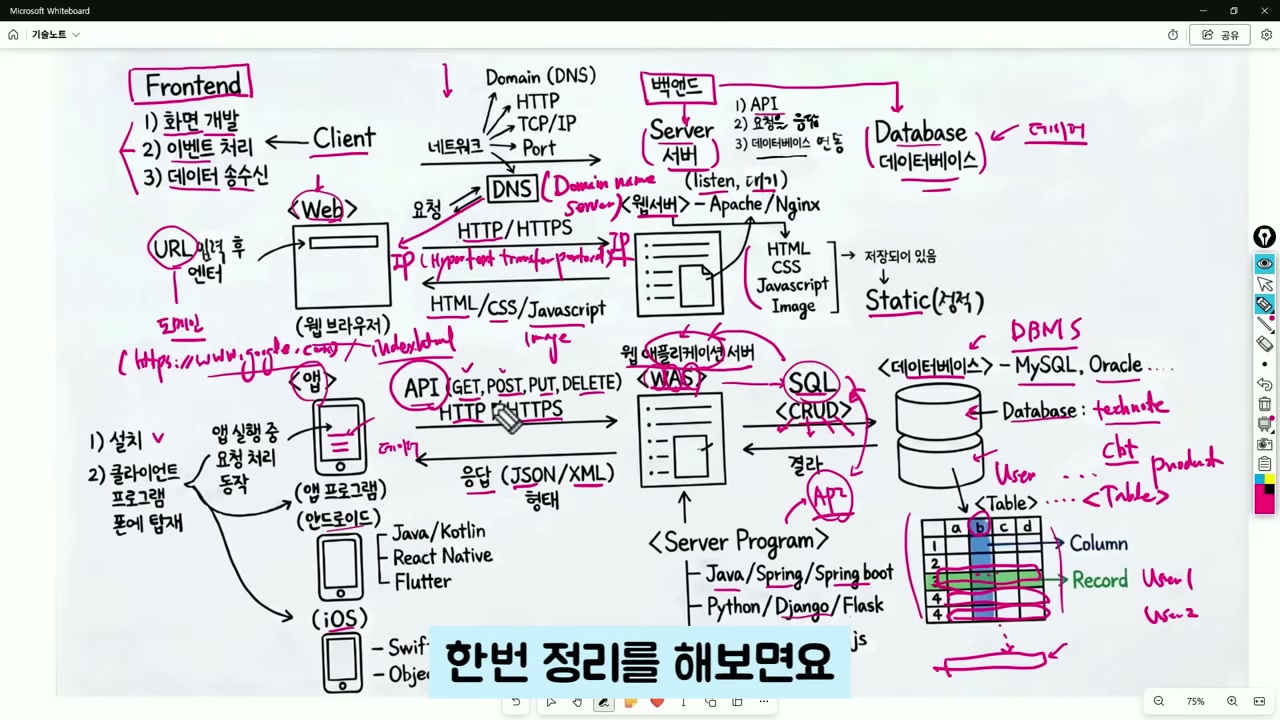 Microsoft Whiteboard
기술노트
공유
Frontend
1) 화면 개발
2) 이벤트 처리
3) 데이터 송수신
Client
<Web>
URL 입력 후
엔터
도메인
(https://www.google.com)/index.html
(웹 브라우저)
Domain (DNS)
HTTP
TCP/IP
Port
네트워크
DNS
(Domain name
server)
요청
HTTP/HTTPS
IP
IP
HTML/CSS/Javascript
Image
백앤드
Server
서버
(listen, 대기)
1) API
2) 요청을 응답
3) 데이터베이스 연동
Database
데이터베이스
데이터
<웹서버> - Apache/Nginx
HTML
CSS
Javascript
Image
저장되어 있음
Static(정적)
<앱>
1) 설치
2) 클라이언트
프로그램
폰에 탑재
앱 실행 중
요청 처리
동작
(앱 프로그램)
(안드로이드)
Java/Kotlin
React Native
Flutter
(iOS)
API (GET, POST, PUT, DELETE)
데이터
응답 (JSON/XML)
형태
웹 애플리케이션 서버
<WAS>
<Server Program>
Java/Spring/Spring boot
Python/Django/Flask
SQL
<CRUD>
결과
API
DBMS
<데이터베이스> - MySQL, Oracle ....
Database : technote
cbt
User
product
<Table> .... <Table>
a b c d
1
2
3
4
4
Column
Record
User1
User2
한번 정리를 해보면요
75%